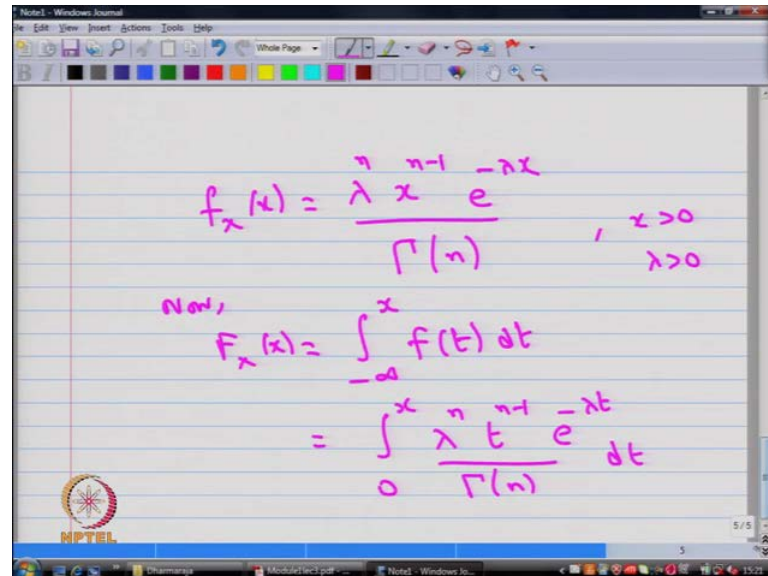 Note1 - Windows Journal
File Edit View Insert Actions Tools Help
Whole Page
B I
f_x(x) = λ^n x^{n-1} e^{-λx} / Γ(n) , x>0
λ>0
Now,
F_x(x) = ∫_{-∞}^{x} f(t) dt
= ∫_0^x λ^n t^{n-1} e^{-λt} / Γ(n) dt
NPTEL
5/5
5
Dharmaraja Module1lec3.pdf - ... Note1 - Windows Jo... 15:21